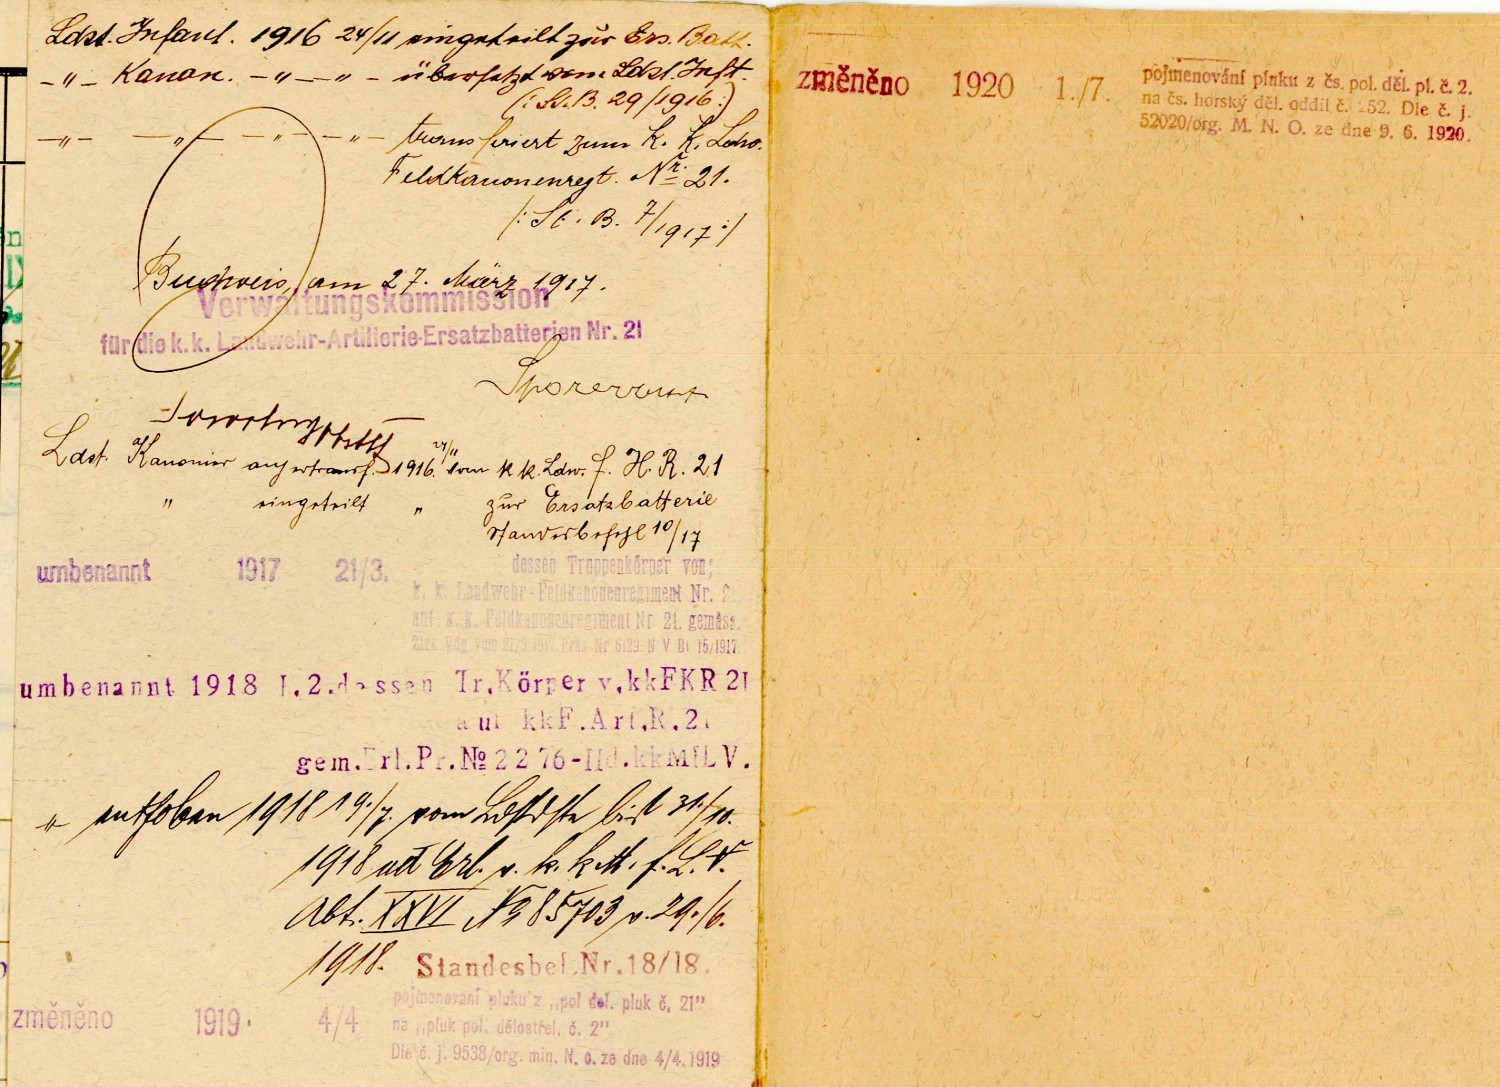 Ldst. Infant. 1916 24/11 eingeteilt zur Ers. Batt.
-"- Kanon. -"- -"- übersetzt vom Ldst. Inft.
(: St. B. 29/1916 :)
-"- -"- -"- -"- transferiert zum k. k. Ldw.
Feldkanonenregt. Nr. 21.
/: St. B. 7/1917 :/
Budweis, am 27. März 1917.
Verwaltungskommission
für die k. k. Landwehr-Artillerie-Ersatzbatterien Nr. 21
Ldst. Kanonier 1916 24/11 vom k.k. Ldw. f. H. R. 21
" eingeteilt " zur Ersatzbatterie
Standesbefehl 10/17
umbenannt 1917 21/3. dessen Truppenkörper von;
k. k. Landwehr-Feldkanonenregiment Nr.
auf k. k. Feldkanonenregiment Nr. 21. gemäss.
15/1917.
umbenannt 1918 1.2. dessen Tr,Körper v,kkFKR 21
auf kkF.Art,R,21
gem.Erl.Pr.№ 2276-IId.kkMfLV.
-"- enthoben 1918 19./7. vom Ldstdste bis 31./10.
1918 mit Erl. v. k. k. M. f. L. V.
Abt. XXVI № 85703 v. 29./6.
1918. Standesbef.Nr.18/18.
změněno 1919. 4/4 pojmenování pluku z „pol děl. pluk č. 21"
na „pluk pol. dělostřel. č. 2"
Dle č. j. 9538/org. min. N. o. ze dne 4/4.1919
změněno 1920 1./7. pojmenování pluku z čs. pol. děl. pl. č. 2.
na čs. horský děl. oddíl č. 252. Dle č. j.
52020/org. M. N. O. ze dne 9. 6. 1920.